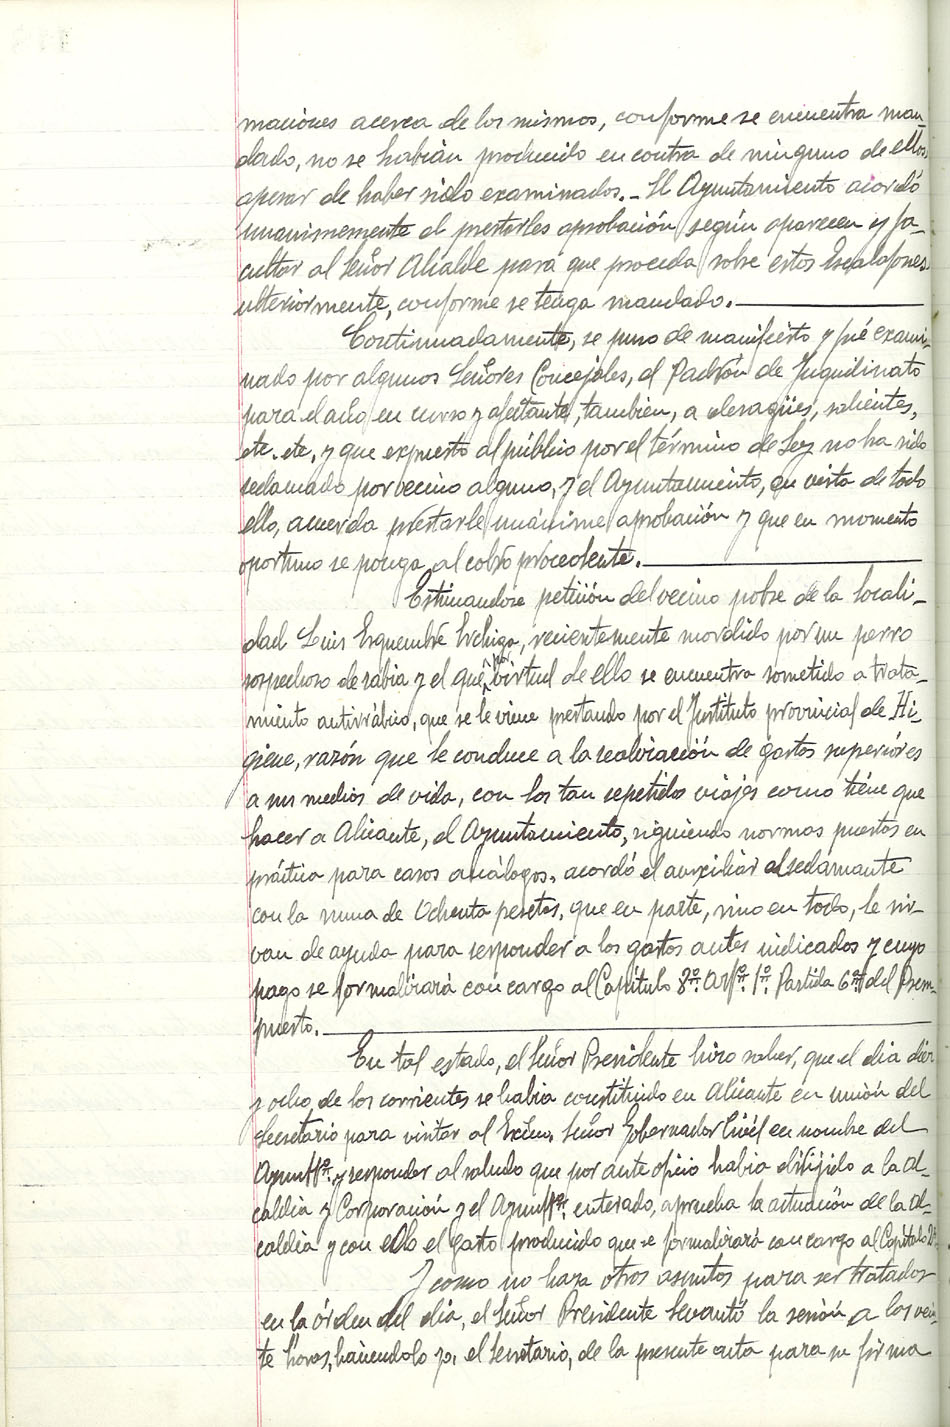 maciones acerca de los mismos, conforme se encuentra man-
dado, no se habían producido en contra de ninguno de ellos,
apesar de haber sido examinados.- El Ayuntamiento acordó
unanimemente el prestarles aprobación según aparecen y fa-
cultar al Señor Alcalde para que proceda sobre estos Escalafones
ulteriormente, conforme se tenga mandado.
Continuadamente, se puso de manifiesto y fué exami-
nado por algunos Señores Concejales, el Padrón de Inquilinato
para el año en curso y afectante, tambien, a desagües, salientes,
etc. etc, y que expuesto al público por el término de Ley no ha sido
reclamado por vecino alguno, y el Ayuntamiento, en vista de todo
ello, acuerda prestarle unánime aprobación y que en momento
oportuno se ponga al cobro procedente.
Estimandose petición del vecino pobre de la locali-
dad Luis Esquembre, recientemente mordido por un perro
sospechoso de rabia y el que, por virtud de ello se encuentra sometido a trata-
miento antirrábico, que se le viene prestando por el Instituto provincial de Hi-
giene, razón que le conduce a la realización de gastos superiores
a sus medios de vida, con los tan repetidos viajes como tiene que
hacer a Alicante, el Ayuntamiento, siguiendo normas puestas en
práctica para casos análogos, acordó el auxiliar al reclamante
con la suma de Ochenta pesetas, que en parte, sino en todo, le sir-
van de ayuda para responder a los gastos antes indicados y cuyo
pago se formalizará con cargo al Capítulo 8º. Artº. 1º. Partida 6ª del Presu-
puesto.
En tal estado, el Señor Presidente hizo saber, que el dia diez
y ocho de los corrientes se habia constituido en Alicante en unión del
Secretario para visitar al Excmo. Señor Gobernador Civil en nombre del
Ayuntº. y responder al saludo que por ante oficio habia dirijido a la Al-
caldia y Corporación y el Ayuntº. enterado, aprueba la actuación de la Al-
caldia y con ello el gasto producido que se formalizará con cargo al Capitulo
Y como no haya otros asuntos para ser tratados
en la órden del dia, el Señor Presidente levantó la sesión a las vein-
te horas, haciendolo yo, el Secretario, de la presente acta para su firma